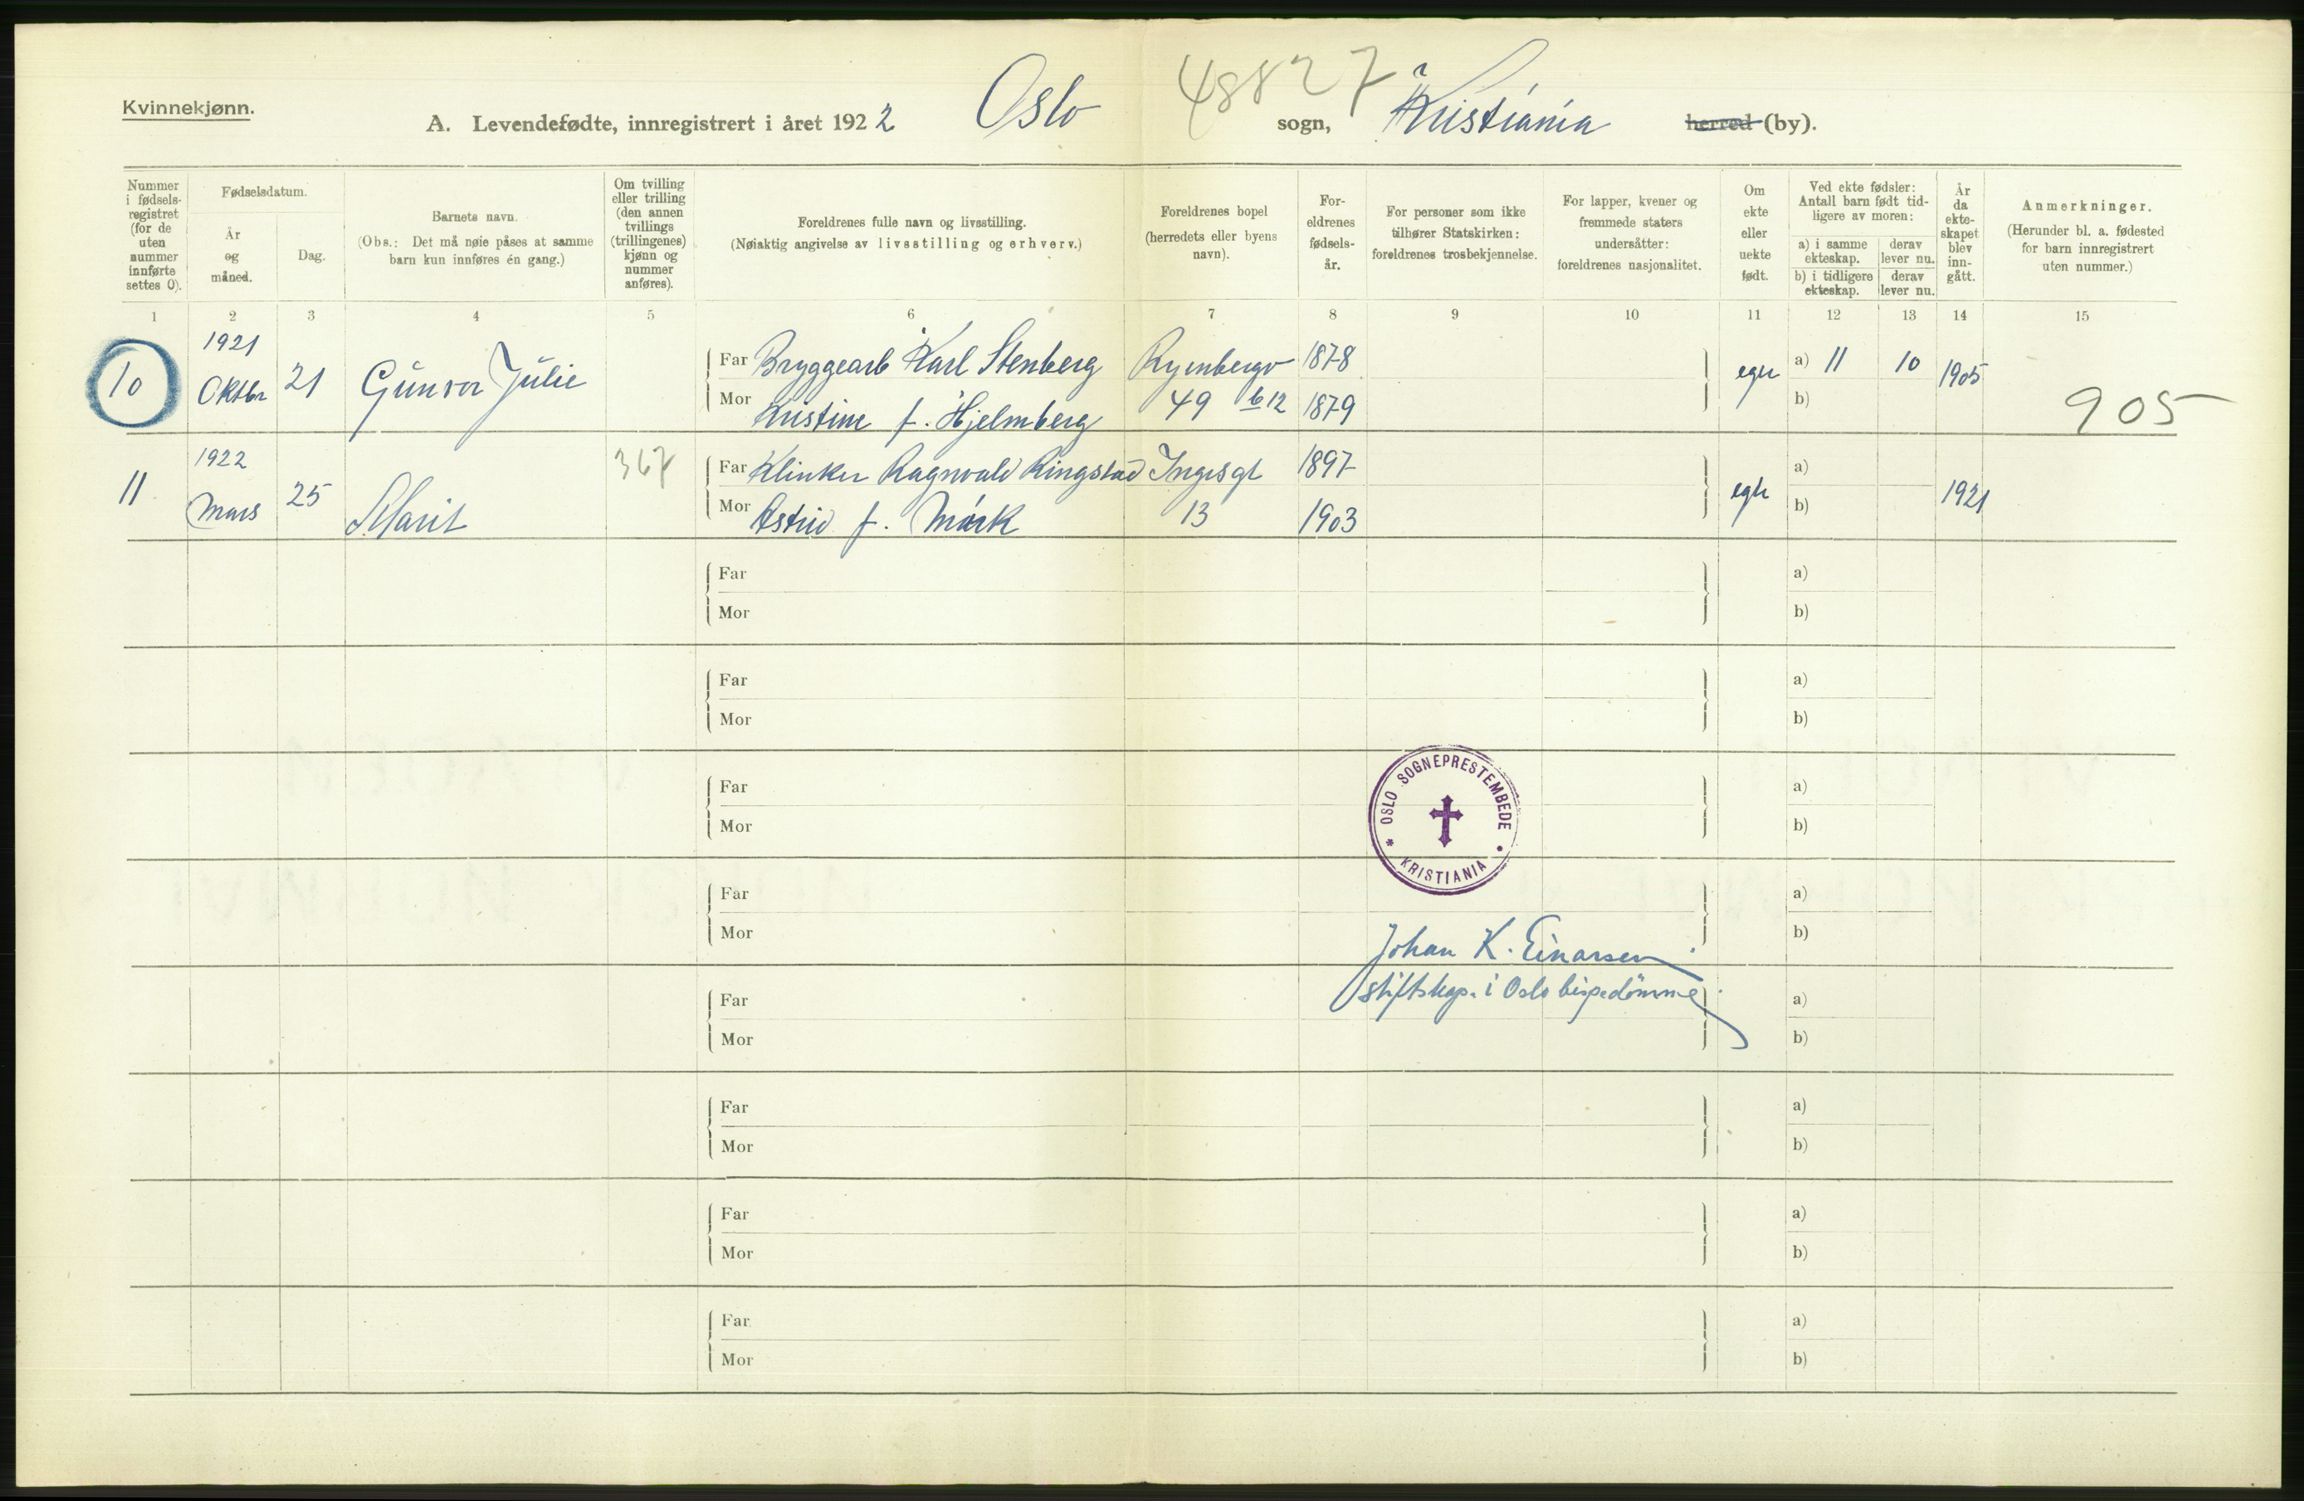 Kvinnekjønn.
A. Levendefødte, innregistrert i året 1922 Oslo sogn, Kristiania herred (by).
48827
Nummer i fødsels-registret (for de uten nummer innførte settes 0).
Fødselsdatum.
År og måned.
Dag.
Barnets navn.
(Obs.: Det må nøie påses at samme barn kun innføres én gang.)
Om tvilling eller trilling (den annen tvillings (trillingenes) kjønn og nummer anføres).
Foreldrenes fulle navn og livsstilling.
(Nøiaktig angivelse av livsstilling og erhverv.)
Foreldrenes bopel (herredets eller byens navn).
For-eldrenes fødsels-år.
For personer som ikke tilhører Statskirken: foreldrenes trosbekjennelse.
For lapper, kvener og fremmede staters undersåtter: foreldrenes nasjonalitet.
Om ekte eller uekte født.
Ved ekte fødsler: Antall barn født tid-ligere av moren:
a) i samme ekteskap.
derav lever nu.
b) i tidligere ekteskap.
derav lever nu.
År da ekte-skapet blev inn-gått.
Anmerkninger.
(Herunder bl. a. fødested for barn innregistrert uten nummer.)
1 2 3 4 5 6 7 8 9 10 11 12 13 14 15
10 1921 Oktbr 21 Gunvor Julie
Far Bryggearb Karl Stenberg Rynbergv 1878 egte a) 11 10 1905
Mor Kristine f. Hjelmberg 49 b12 1879 b) 905
11 1922 Mars 25 Marit 367
Far Klinker Ragnvald Ringstad Ingesgt 1897 egte a) 1921
Mor Astrid f. Mørk 13 1903 b)
Far a)
Mor b)
Far a)
Mor b)
Far a)
Mor b)
Far a)
Mor b)
Far a)
Mor b)
Far a)
Mor b)
Far a)
Mor b)
Far a)
Mor b)
OSLO SOGNEPRESTEMBEDE
* KRISTIANIA •
Johan K. Einarsen
stiftskap. i Oslo bispedømme.